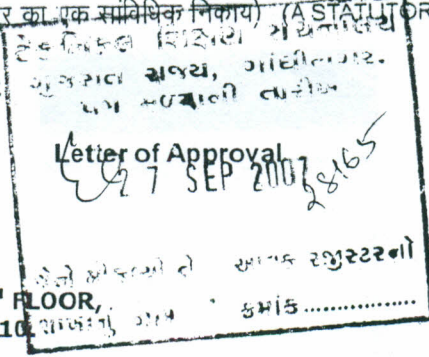 र का एक सांविधिक निकाय) (A STATUTOR
ટેકનિકલ શિક્ષણ
ગુજરાત રાજ્ય, ગાંધીનગર.
પત્ર મળ્યાની તારીખ
Letter of Approval
27 SEP 2007
28165
આવક રજીસ્ટરનો
FLOOR,
ક્રમાંક................
10